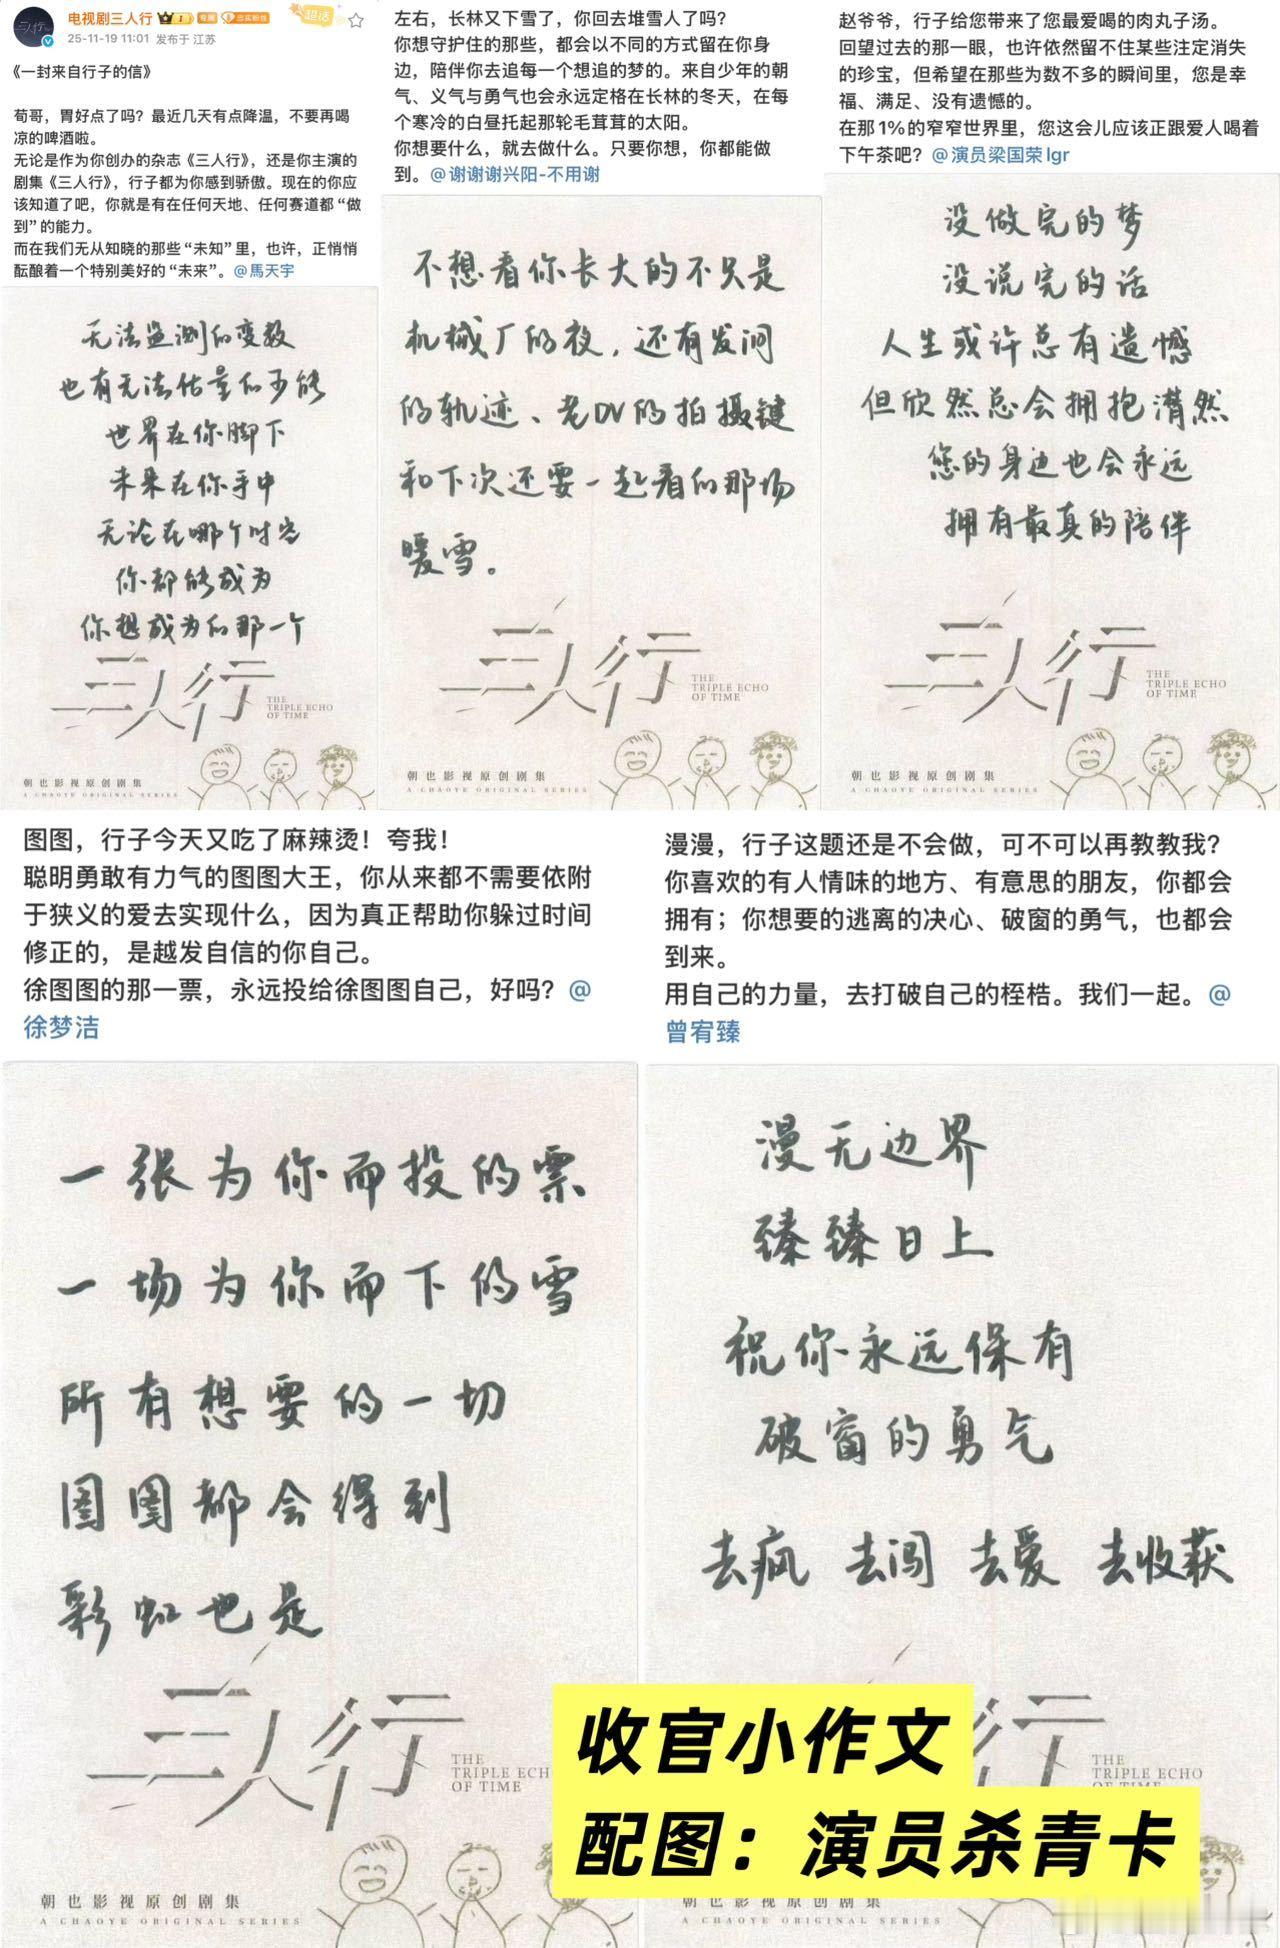 电视剧三人行
25-11-19 11:01 发布于 江苏
超话
《一封来自行子的信》
荀哥，胃好点了吗？最近几天有点降温，不要再喝
凉的啤酒啦。
无论是作为你创办的杂志《三人行》，还是你主演的
剧集《三人行》，行子都为你感到骄傲。现在的你应
该知道了吧，你就是有在任何天地、任何赛道都“做
到”的能力。
而在我们无从知晓的那些“未知”里，也许，正悄悄
酝酿着一个特别美好的“未来”。@馬天宇
无法监测的变数
也有无法估量的可能
世界在你脚下
未来在你手中
无论在哪个时空
你都能成为
你想成为的那一个
三人行
THE
TRIPLE ECHO
OF TIME
朝也影视原创剧集
A CHAOYE ORIGINAL SERIES
左右，长林又下雪了，你回去堆雪人了吗？
你想守护住的那些，都会以不同的方式留在你身
边，陪伴你去追每一个想追的梦的。来自少年的朝
气、义气与勇气也会永远定格在长林的冬天，在每
个寒冷的白昼托起那轮毛茸茸的太阳。
你想要什么，就去做什么。只要你想，你都能做
到。@谢谢谢兴阳-不用谢
不想看你长大的不只是
机械厂的夜，还有发间
的轨迹、老DV的拍摄键
和下次还要一起看的那场
暖雪。
三人行
THE
TRIPLE ECHO
OF TIME
朝也影视原创剧集
A CHAOYE ORIGINAL SERIES
赵爷爷，行子给您带来了您最爱喝的肉丸子汤。
回望过去的那一眼，也许依然留不住某些注定消失
的珍宝，但希望在那些为数不多的瞬间里，您是幸
福、满足、没有遗憾的。
在那1%的窄窄世界里，您这会儿应该正跟爱人喝着
下午茶吧？@演员梁国荣lgr
没做完的梦
没说完的话
人生或许总有遗憾
但欣然总会拥抱潸然
您的身边也会永远
拥有最真的陪伴
三人行
THE
TRIPLE ECHO
OF TIME
朝也影视原创剧集
A CHAOYE ORIGINAL SERIES
图图，行子今天又吃了麻辣烫！夸我！
聪明勇敢有力气的图图大王，你从来都不需要依附
于狭义的爱去实现什么，因为真正帮助你躲过时间
修正的，是越发自信的你自己。
徐图图的那一票，永远投给徐图图自己，好吗？@
徐梦洁
一张为你而投的票
一场为你而下的雪
所有想要的一切
图图都会得到
彩虹也是
三人行
THE
TRIPLE ECH
OF TIME
朝也影视原创剧集
A CHAOYE ORIGINAL SERIES
漫漫，行子这题还是不会做，可不可以再教教我？
你喜欢的有人情味的地方、有意思的朋友，你都会
拥有；你想要的逃离的决心、破窗的勇气，也都会
到来。
用自己的力量，去打破自己的桎梏。我们一起。@
曾宥臻
漫无边界
臻臻日上
祝你永远保有
破窗的勇气
去疯 去闯 去爱 去收获
行
THE
TRIPLE ECHO
OF TIME
朝也影视原创剧集
A CHAOYE ORIGINAL SERIES
收官小作文
配图：演员杀青卡